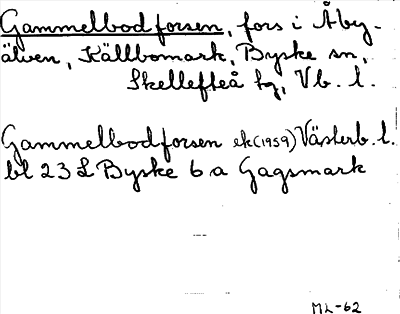 Gammelbodforsen, fors i Åby-
älven, Källbomark, Byske sn,
Skellefteå tg, Vb. l.
Gammelbodforsen ek(1959) Västerb. l.
bl 23 L Byske 6 a Gagsmark
ML-62